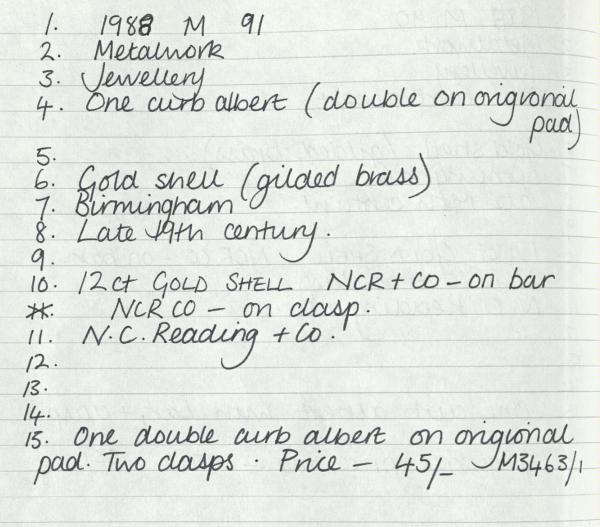 1. 1988 M 91
2. Metalwork
3. Jewellery
4. One curb albert (double on origional
pad)
5.
6. Gold shell (gilded brass)
7. Birmingham
8. Late 19th century.
9.
10. 12ct GOLD SHELL NCR + CO - on bar
*. NCR CO - on clasp.
11. N.C. Reading + Co.
12.
13.
14.
15. One double curb albert on origional
pad. Two clasps. Price - 45/- M3463/1